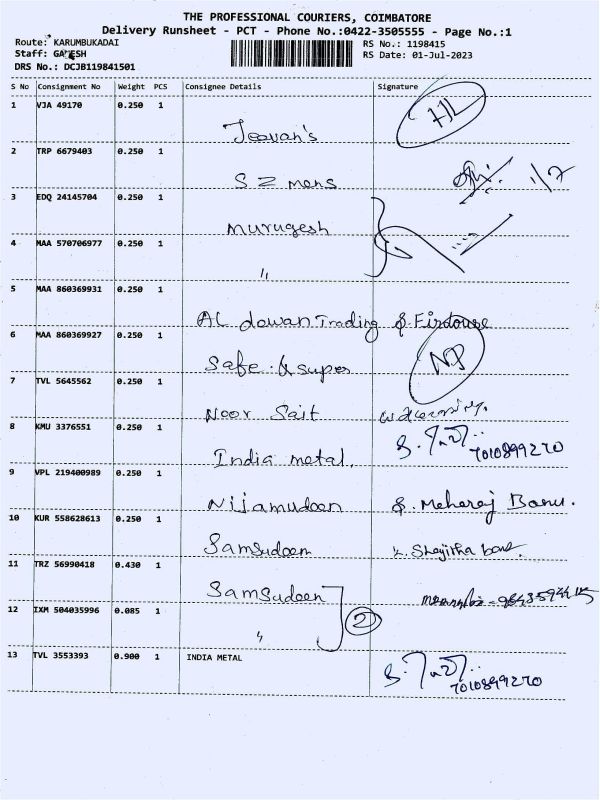 THE PROFESSIONAL COURIERS, COIMBATORE
Delivery Runsheet - PCT - Phone No.:0422-3505555 - Page No.:1
Route: KARUMBUKADAI
RS No.: 1198415
Staff: GANESH
RS Date: 01-Jul-2023
DRS No.: DCJB119841501
S No Consignment No Weight PCS Consignee Details Signature
1 VJA 49170 0.250 1
Jeevan's
2 TRP 6679403 0.250 1
S Z mens 1/7
3 EDQ 24145704 0.250 1
Murugesh
4 MAA 570706977 0.250 1
"
5 MAA 860369931 0.250 1
AL dawan Trading & Firdouse
6 MAA 860369927 0.250 1
Safe & super NP
7 TVL 5645562 0.250 1
Noor Sait
8 KMU 3376551 0.250 1
India metal. 7010899270
9 VPL 219400989 0.250 1
Nijamudeen S. Meheraj Banu.
10 KUR 558628613 0.250 1
Samsudeen
11 TRZ 56990418 0.430 1
Samsudeen
12 IXM 504035996 0.085 1
" 2
13 TVL 3553393 0.900 1 INDIA METAL
7010899270